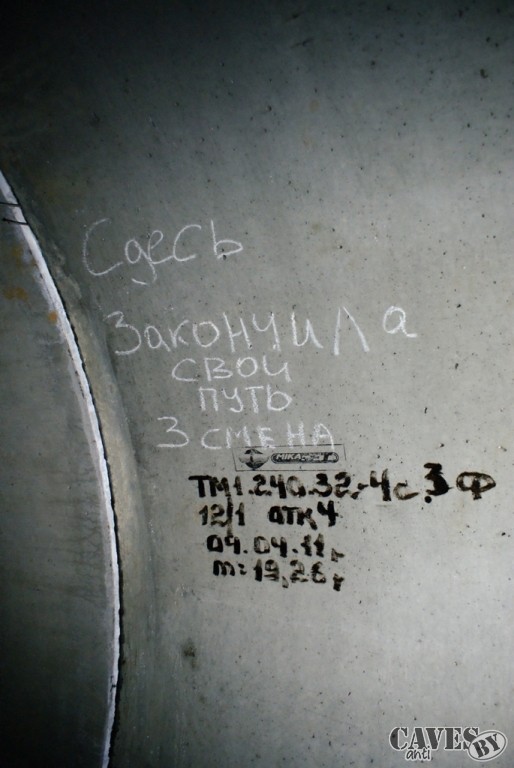 Сдесь
Закончила
свой
путь
3 смена
МІКА
ТМ1.240.32-4с.3 Ф
12/1 ОТК4
04.04.11г
m=19,26т
CAVES BY
anti